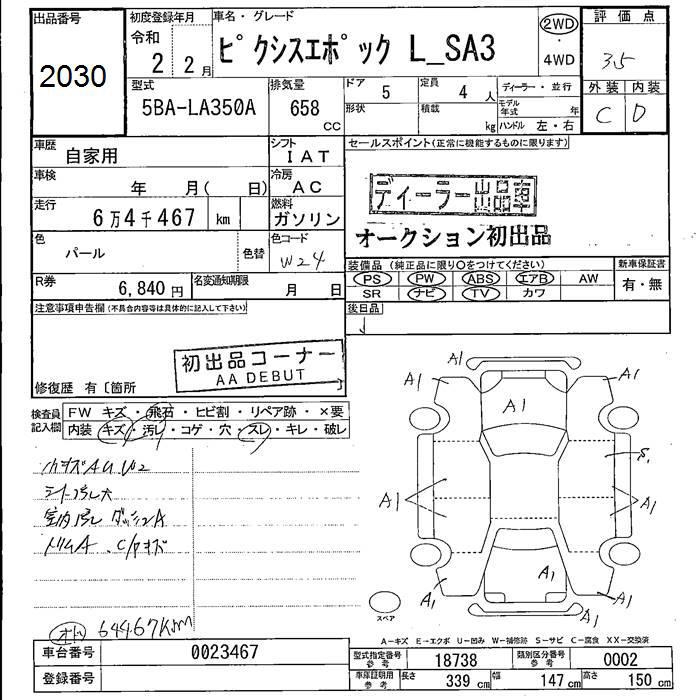 出品番号
2030
初度登録年月
令和
2 2月
車名・グレード
ピクシスエポック L_SA3
2WD
・
4WD
評価点
3.5
外装 内装
C D
型式
5BA-LA350A
排気量
658
CC
ドア
5
定員
4 人
形状
積載
kg
ディーラー・並行
モデル年式 年
ハンドル 左・右
車歴
自家用
シフト
IAT
車検
年 月( 日)
冷房
AC
走行
6万4千467 km
燃料
ガソリン
色
パール
色替
色コード
W24
R券
6,840円
名変通知期限
月 日
セールスポイント(正常に機能するものに限ります)
ディーラー出品車
オークション初出品
装備品(純正品に限り○をつけてください)
PS PW ABS エアB AW
SR ナビ TV カワ
新車保証書
有・無
後日品
注意事項申告欄(不具合内容等は具体的に記入して下さい)
初出品コーナー
AA DEBUT
修復歴 有〔箇所
検査員
記入欄
FW キズ・飛石・ヒビ割・リペア跡・×要
内装 キズ・汚レ・コゲ・穴・スレ・キレ・破レ
A1
A1
A1
A1
S1
A1
A1
A1
A1
A1
A1
スペア
64467Km
A-キズ E-エクボ U-凹み W-補修跡 S-サビ C-腐食 XX-交換済
車台番号
0023467
登録番号
型式指定番号
参考
18738
類別区分番号
参考
0002
車庫証明用
参考
長さ
339 cm
幅
147 cm
高さ
150 cm